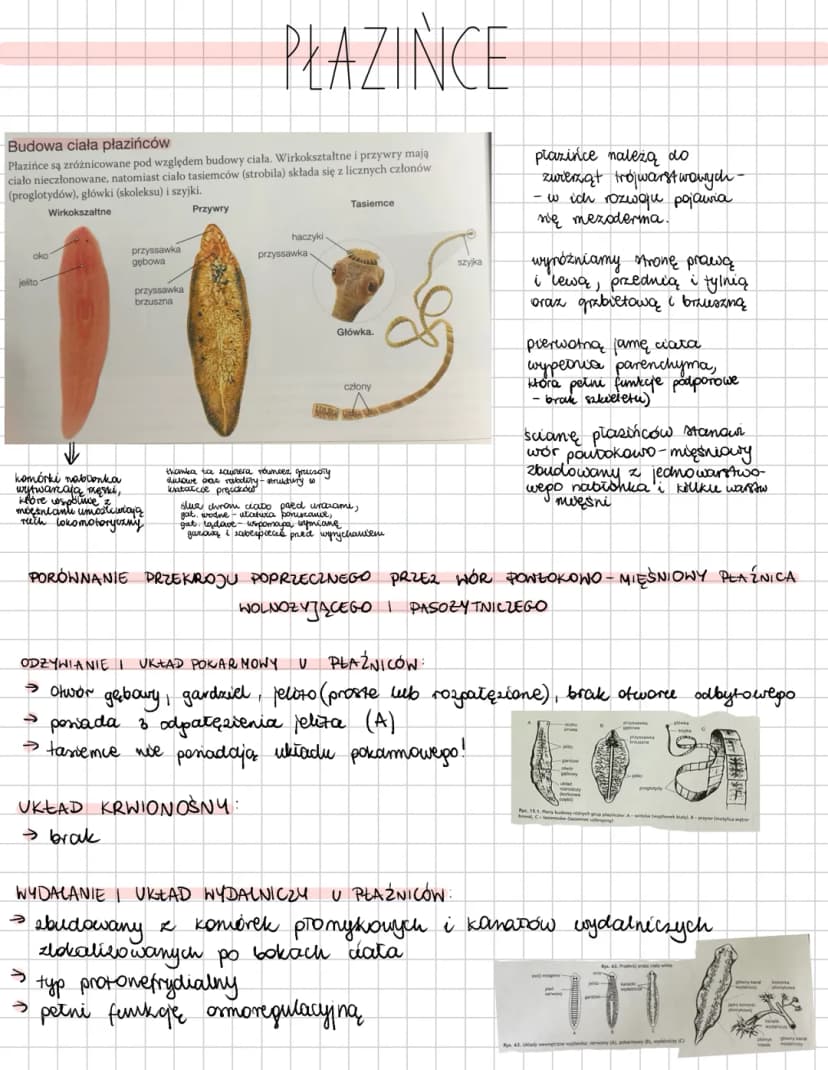 PŁAZIŃCE
Budowa ciała płazińców
Płazińce są zróżnicowane pod względem budowy ciała. Wirkokształtne i przywry mają
ciało nieczłonowane, natomiast ciało tasiemców (strobila) składa się z licznych członów
(proglotydów), główki (skoleksu) i szyjki.
Wirkokształtne
Przywry
Tasiemce
oko
jelito
przyssawka
gębowa
przyssawka
brzuszna
haczyki
przyssawka
szyjka
Główka.
człony
płazińce należą do
zwierząt trójwarstwowych -
- w ich rozwoju pojawia
się mezoderma.
wyróżniamy stronę prawą
i lewą, przednią i tylnią
oraz grzbietową i brzuszną
pierwotną jamę ciała
wypełnia parenchyma,
która pełni funkcje podporowe
- brak szkieletu)
ścianę płazińców stanowi
wór powłokowo-mięśniowy
zbudowany z jednowarstwo-
wego nabłonka i kilku warstw
mięśni
komórki nabłonka
wytwarzają rzęski,
które wspólnie z
mięśniami umożliwiają
ruch lokomotoryczny
tkanka ta zawiera również gruczoły
śluzowe oraz rabdity - struktury w
kształcie pręcików
śluz chroni ciało przed urazami,
gat. wodne - ułatwia poruszanie,
gat. lądowe - wspomaga wymianę
gazową i zabezpiecza przed wyschnięciem
PORÓWNANIE PRZEKROJU POPRZECZNEGO PRZEZ WÓR POWŁOKOWO-MIĘŚNIOWY PŁAŹNICA
WOLNOŻYJĄCEGO I PASOŻYTNICZEGO
ODŻYWIANIE I UKŁAD POKARMOWY U PŁAŹNICÓW:
→ Otwór gębowy, gardziel, jelito (proste lub rozgałęzione), brak otworu odbytowego
→ posiada 3 odgałęzienia jelita (A)
→ tasiemce nie posiadają układu pokarmowego!
UKŁAD KRWIONOŚNY:
→ brak
WYDALANIE I UKŁAD WYDALNICZY U PŁAŹNICÓW:
→ zbudowany z komórek płomykowych i kanałów wydalniczych
zlokalizowanych po bokach ciała
→ typ protonefrydialny
→ pełni funkcję osmoregulacyjną